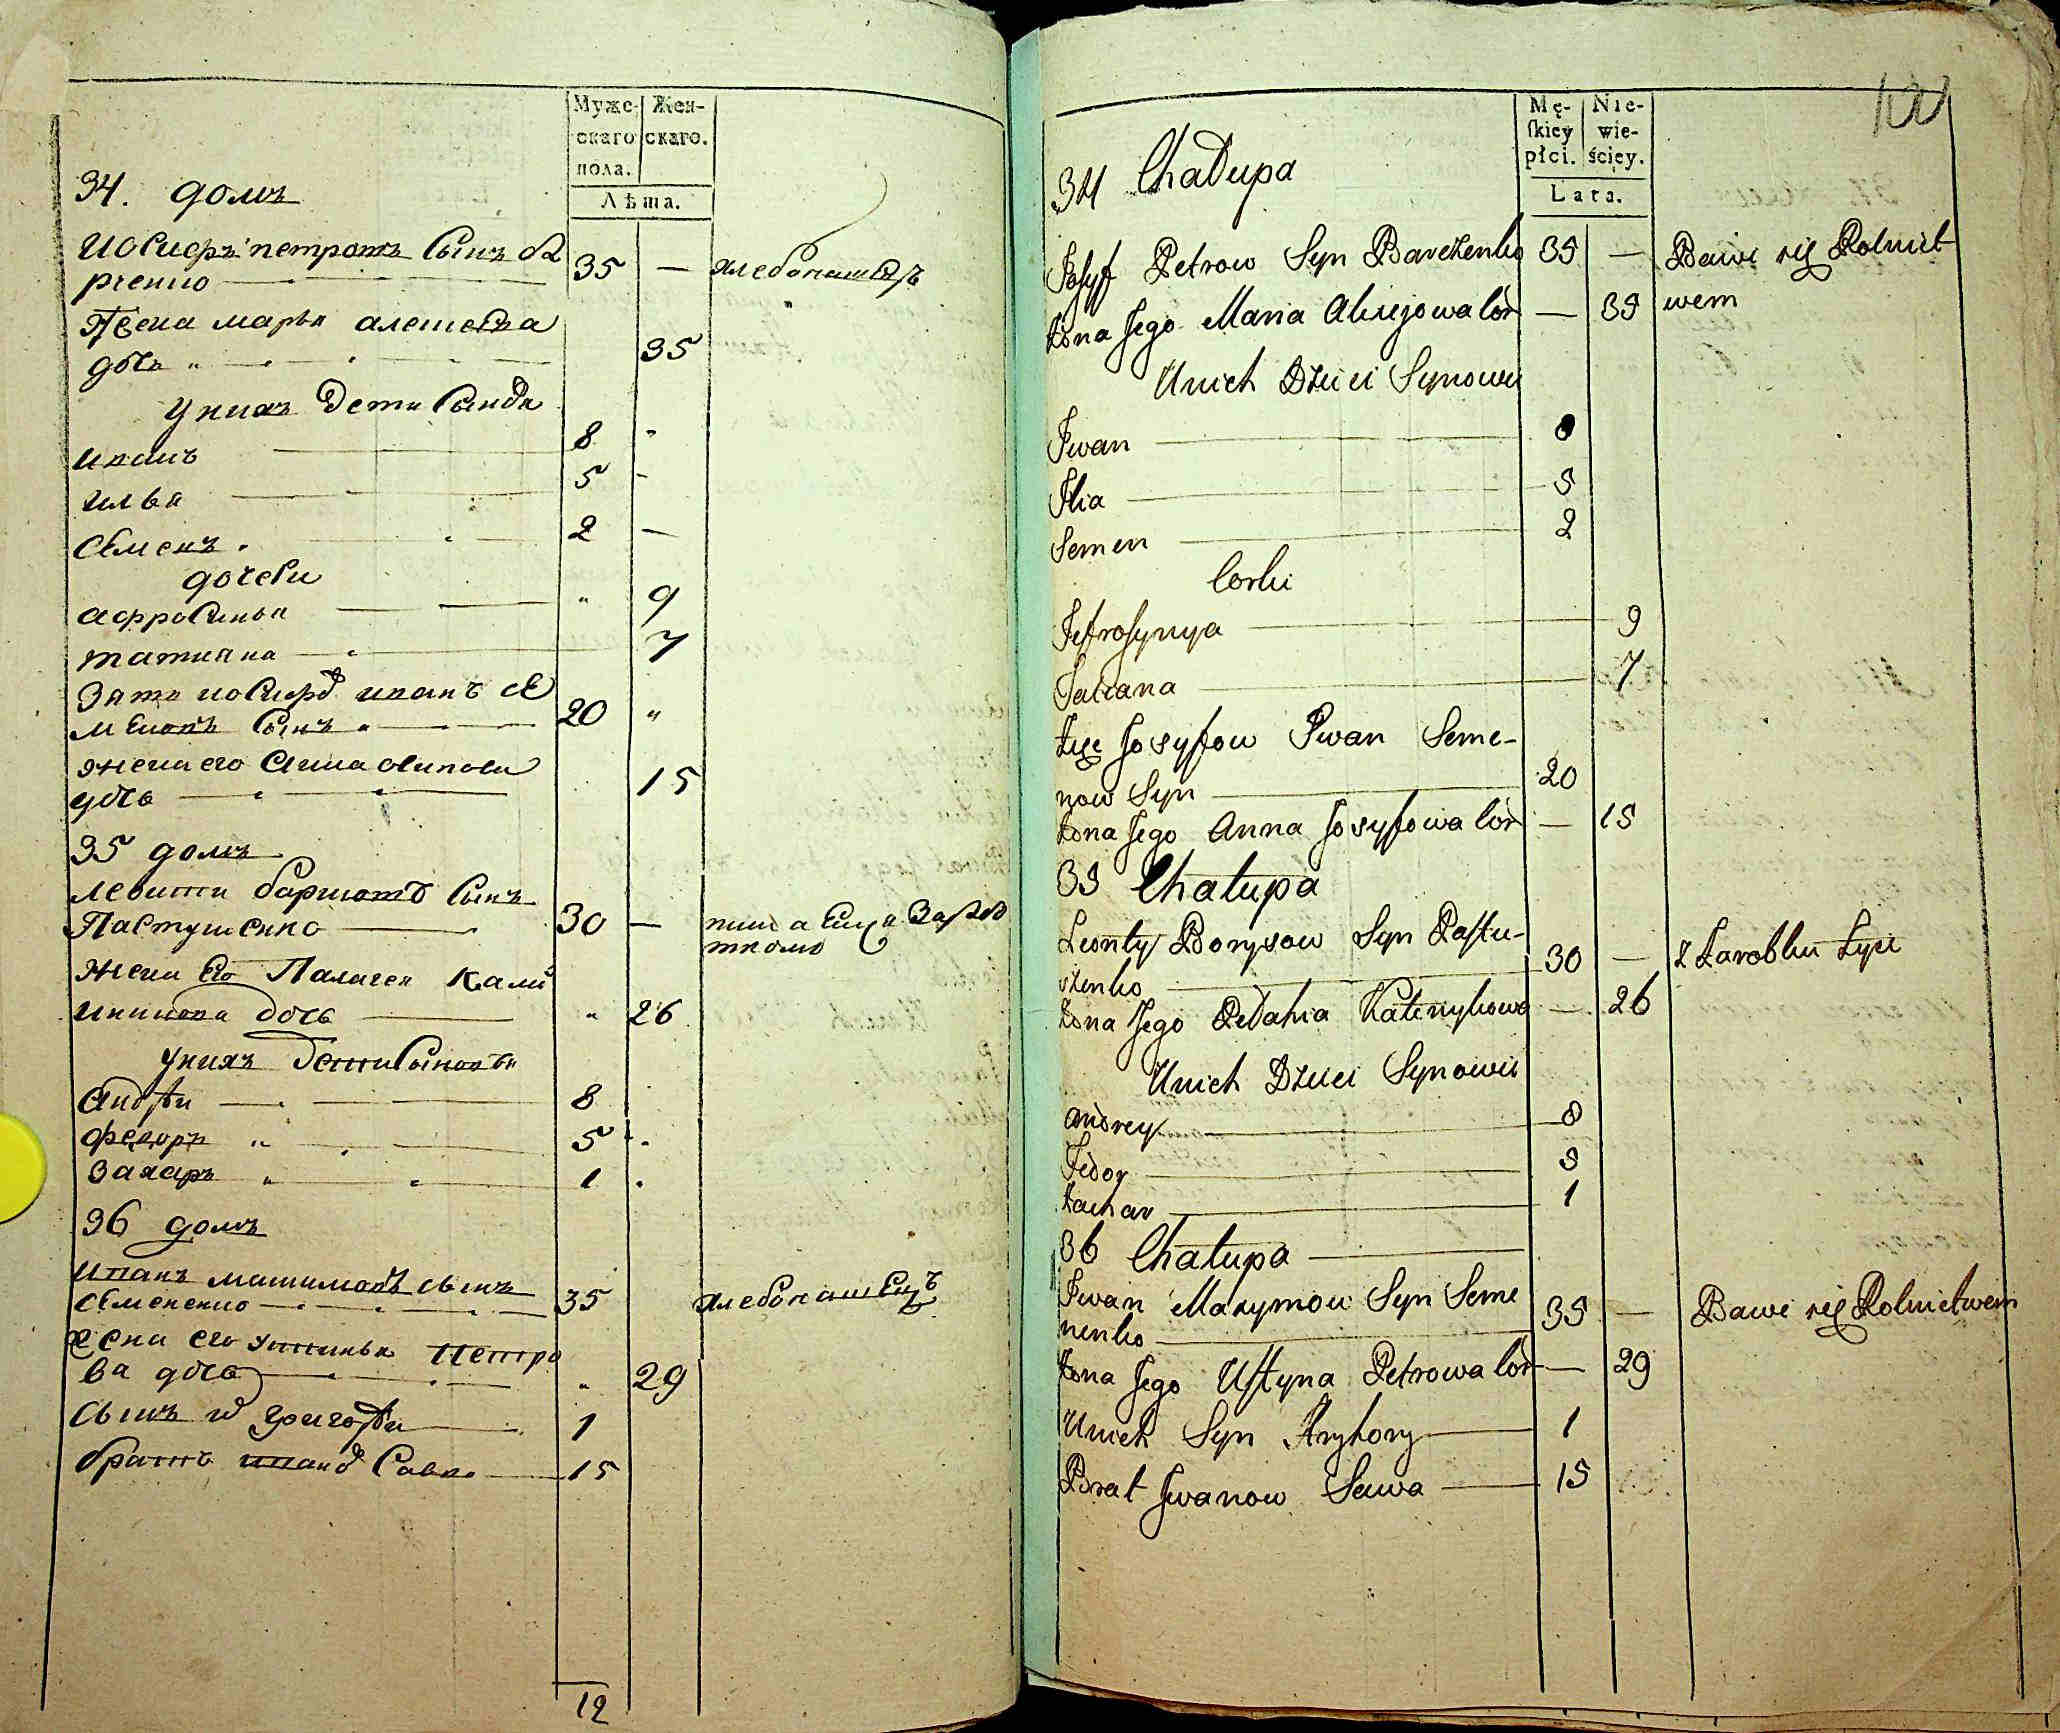 Муже- Жен-
скаго скаго.
пола.
Лѣта.
34. домъ
Иосифъ петровъ Сынъ ба
рченко 35 — хлебопашецъ
Жена марья алексѣева
дочь 35
У нихъ дети Сыновя
иванъ 8
илья 5 -
Семенъ 2 —
дочеьи
афросинья " 9
татияна 7
Зять иосифовъ иванъ се
меновъ Сынъ 20 "
жена его анна осипова
дочь 15
35 домъ
левонти борисовъ Сынъ
Пастушенко 30 — питаеца Зарабо
тком
Жена Его Палагея Кали
никова дочь " 26
У нихъ дети Сыновья
андрѣи 8
федоръ 5
Захаръ 1
36 домъ
Иванъ максимовъ сынъ
Семененко 35 хлебопашецъ
жена его устинья петро
ва дочь " 29
Сынъ григорѣи 1
братъ ивановъ Савка 15
12
Mę- Nie-
ſkiey wie-
płci. ściey.
Lata.
34 Chałupa
Josyf Petrow Syn Barczenko 35 — Bawi się Rolnict
Żona Jego Maria Alexiejowa Cór — 35 wem
U nich Dzieci Synowie
Iwan 8
Ilia 5
Semen 2
Corki
Jefrosynya 9
Taciana 7
Zięć Josyfow Iwan Seme-
now Syn 20
Żona Jego Anna Josyfowa Cór — 15
35 Chałupa
Leonty Borysow Syn Pastu-
szenko 30 — z Zarobku Żyie
Żona Jego Pełahia Kalenykowa — 26
U nich Dzieci Synowie
Andrey 8
Fedor 5
Zachar 1
36 Chałupa
Iwan Maxymow Syn Seme
nenko 35 — Bawi się Rolnictwem
Żona Jego Ustyna Petrowa Cór — 29
U nich Syn Hryhory 1
Brat Iwanow Sawa 15